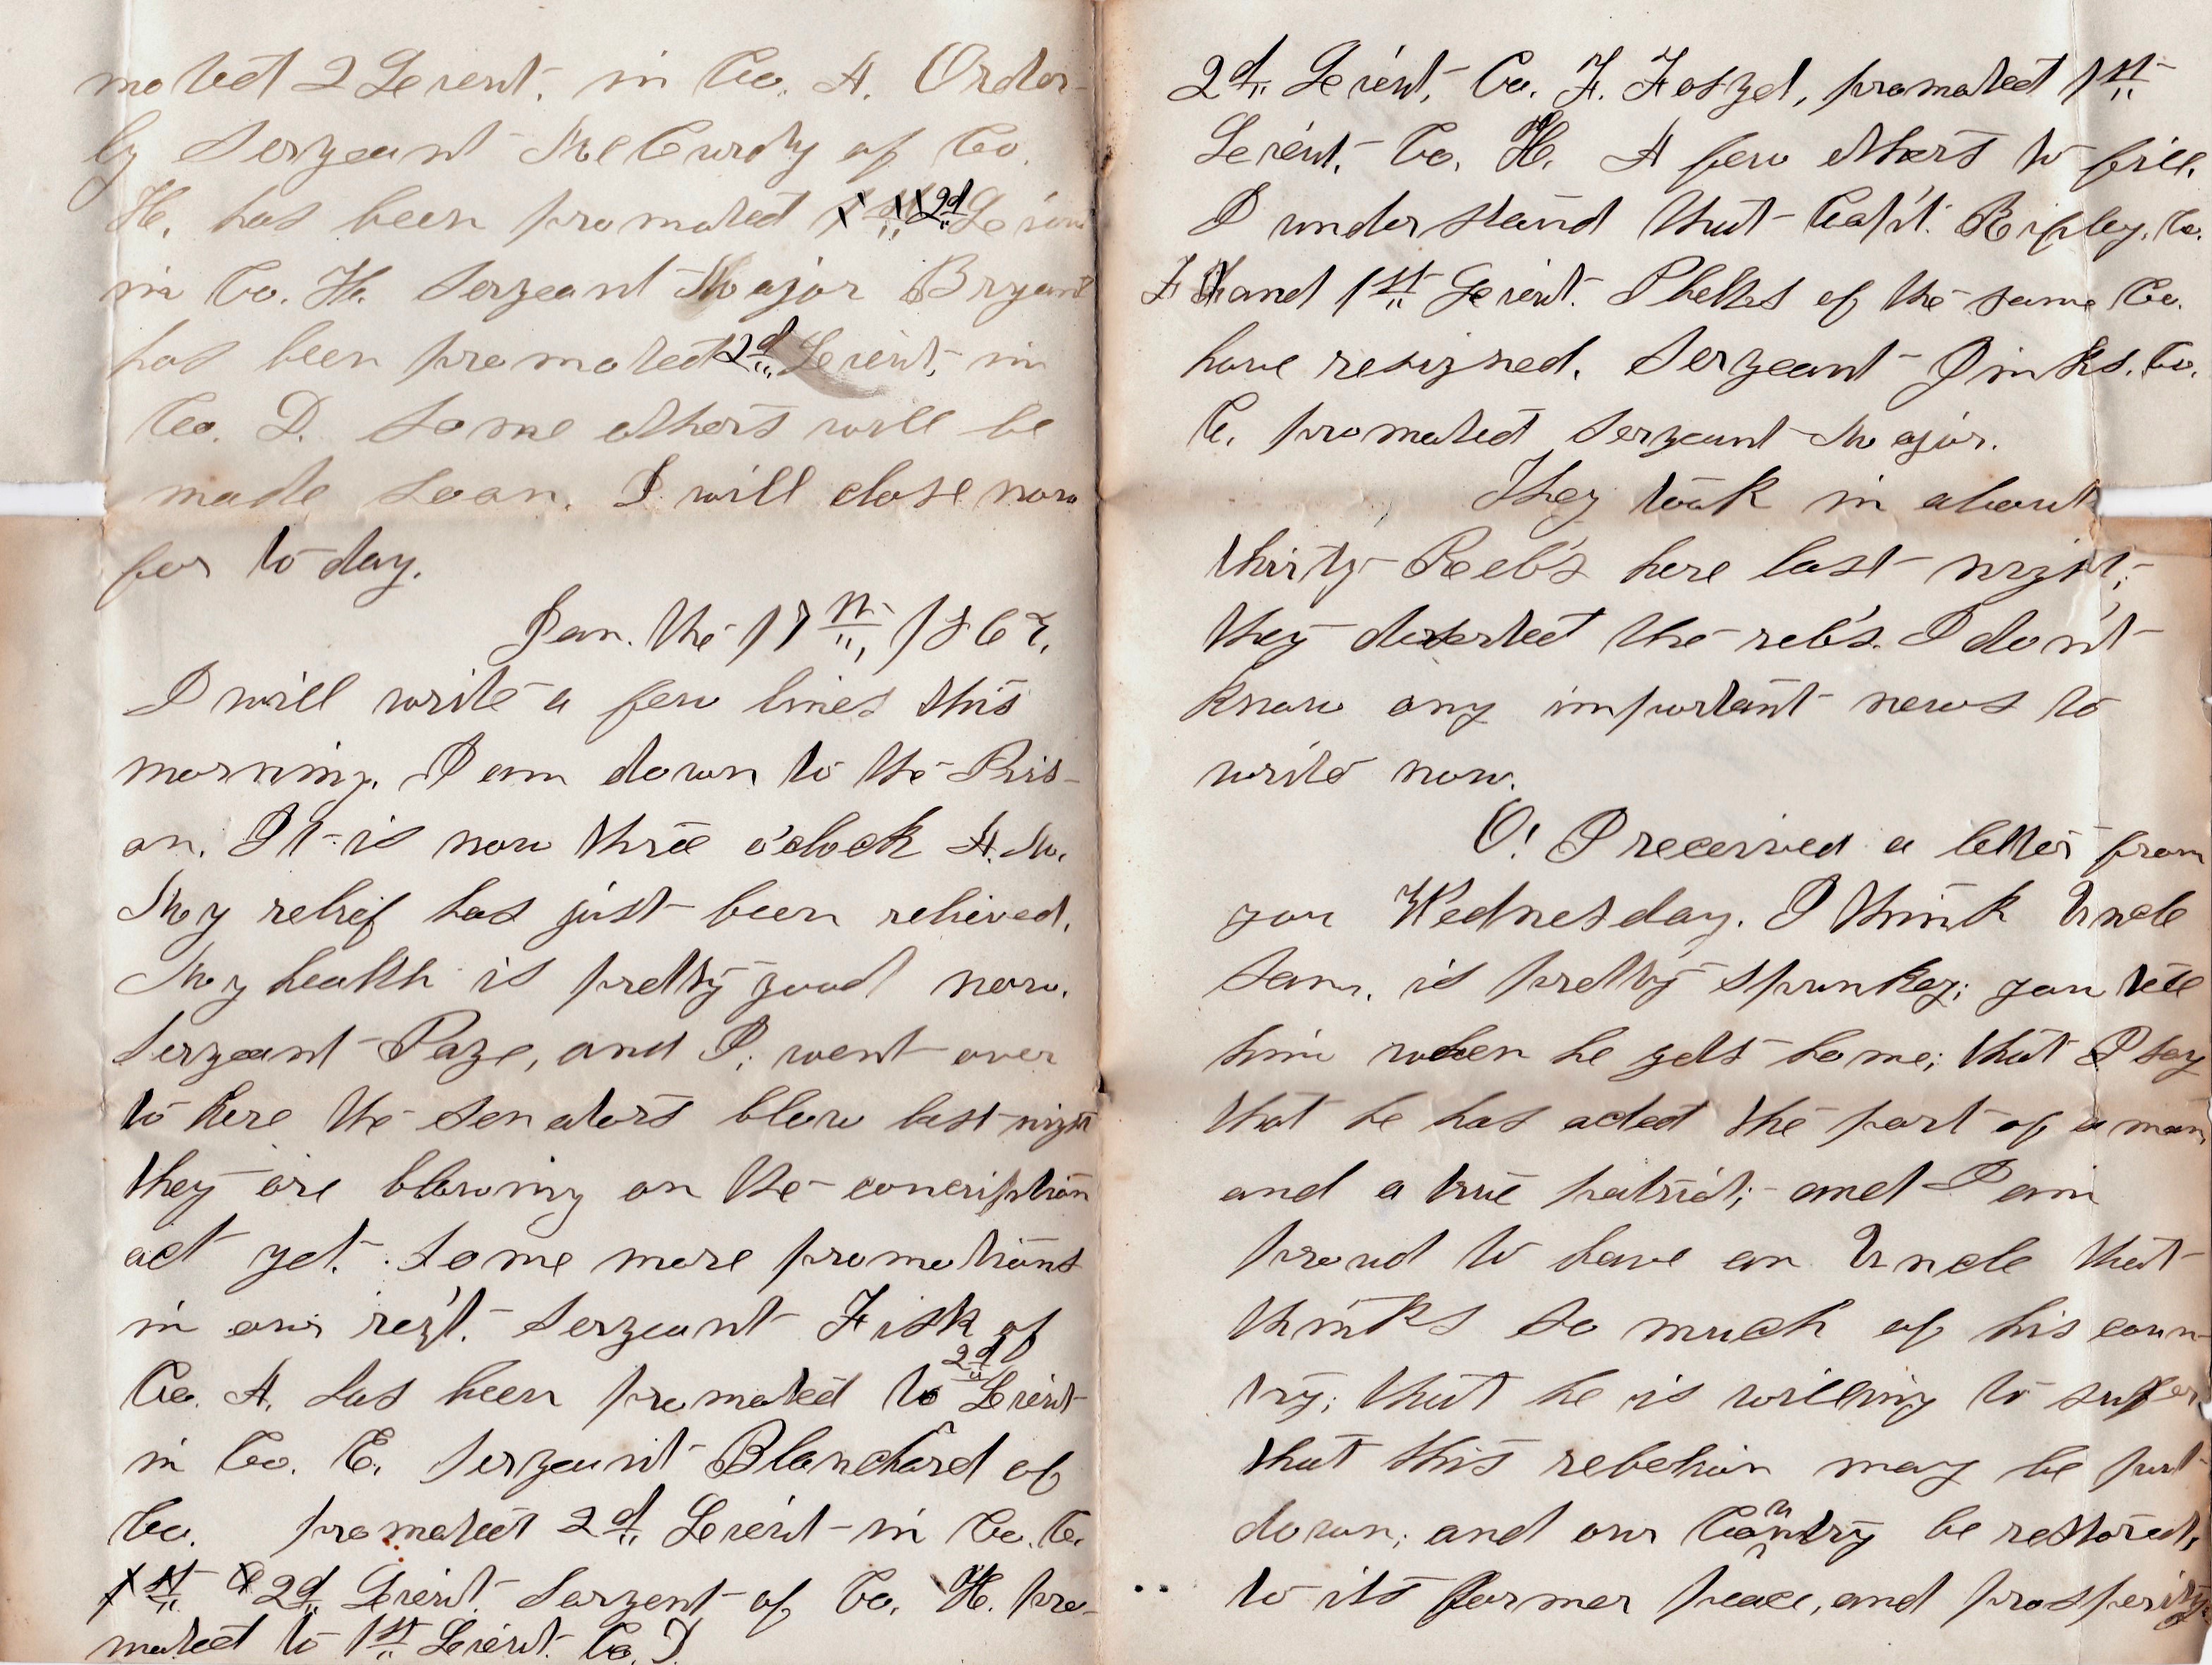 moted 2 Leieut. in Co. A. Order-
ly Sergeant McCurdy of Co.
H. has been promoted 2d Leieut
in Co. H. Sergeant Major Bryant
has been promoted 2d Leieut, in
Co. D. Some others will be
made soon. I will close now
for to day.
Jan. the 17th, 186
I will write a few lines this
morning. I am down to the Pris-
on. It is now three o'clock A.M.
My relief has just been relieved.
My health is pretty good now.
Sergeant Page, and I; went over
to here the Senators blow last night
they are blowing on the concription
act yet. Some more promotions
in our reg't. Sergeant Fisk of
Co. A. has been promoted to 2d Leieut
in Co. E. Sergeant Blanchard of
Co. promoted 2d Leieut in Co. C.
2d Leieut Sergent of Co. H. pro-
moted to 1st Leieut. Co. D.
2d Leieut, Co. F. promoted 1st
Leieut. Co. H. A few others to fill.
I understand that Cap't. Ripley, Co.
F and 1st Leieut. Phelps of the same Co.
have resigned. Sergeant Jinks, Co.
C. promoted Sergeant Major.
They took in about
thirty Reeb's here last night;
they deserted the reb's. I do n't
know any important news to
write now.
O! I received a letter from
you Wednesday. I think Uncle
Sam, is pretty spunkey; you tell
him when he gets home; that I say
that he has acted the part of a man,
and a true patriot; and I am
proud to have an Uncle that
thinks so much of his coun-
try; that he is willing to suffer
that this rebelion may be put
down; and our Country be restored,
to its former peace, and prosperity.